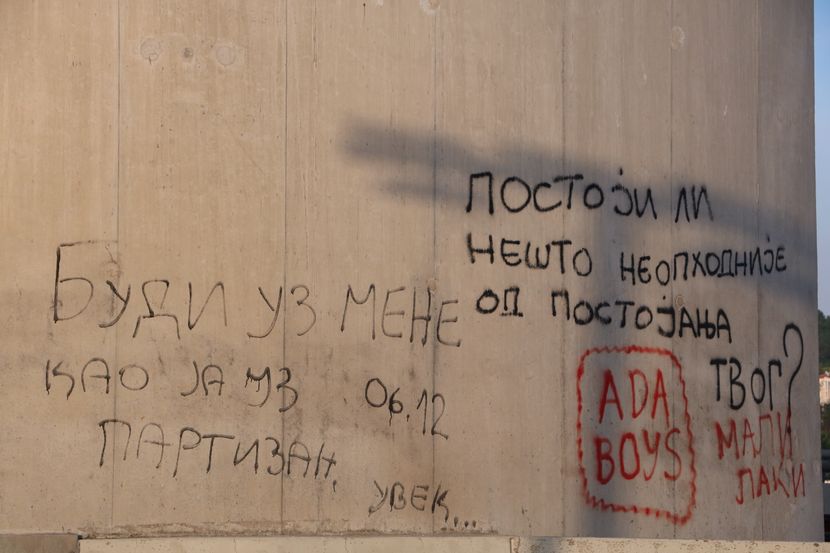 Буди уз мене
као ја уз
ПАРТИЗАН.
06.12
увек...
Постоји ли
нешто неопходније
од постојања
твог?
ADA
BOYS
МАЛИ
ЛАКИ